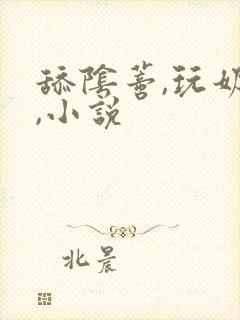 舔陰蒂,玩奶
,小説
北晨